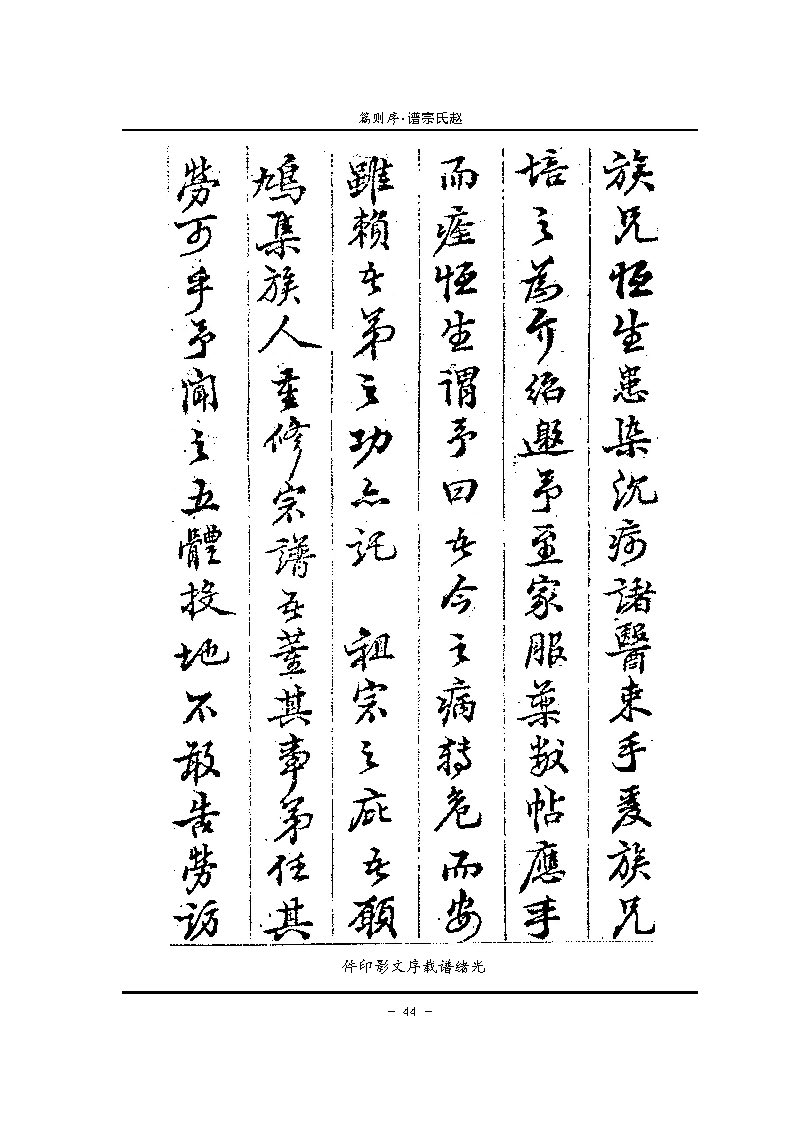 赵氏宗谱·序则篇
族兄恒生患染沉疴諸醫束手爰族兄
培之為介紹邀予至家服藥数帖應手
而痊恒生謂予曰吾今之病轉危而安
雖賴吾弟之功亦託　祖宗之庇吾願
鳩集族人重修宗譜吾董其事弟任其
勞可乎予聞之五體投地不敢告勞訪
光绪谱载序文影印件
- 44 -